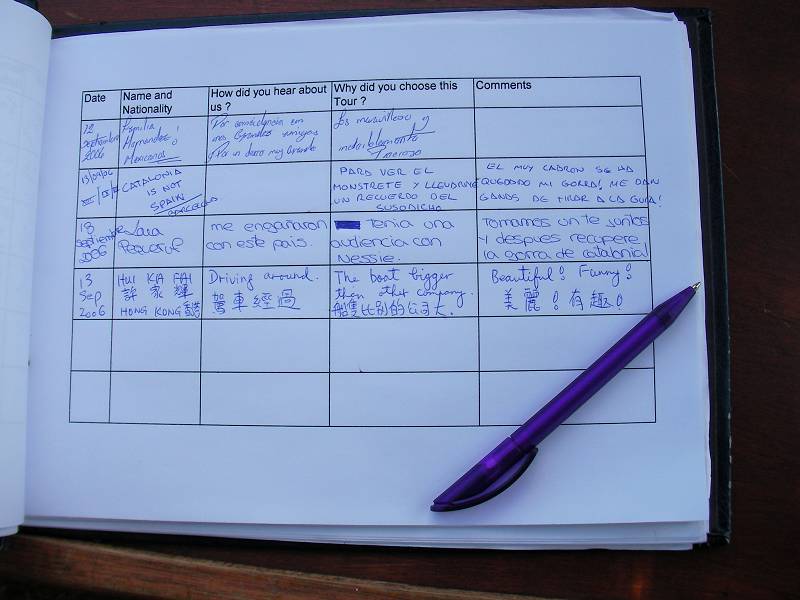 Date
Name and
Nationality
How did you hear about
us ?
Why did you choose this
Tour ?
Comments
12
septiembre
2006
Familia
Hernandez
Mexicanos
Por coincidencia em
mos Grandes amigos
Por un
Es maravilloso y
indeciblemente
13/09/06
CATALONIA
IS NOT
SPAIN
BARCELONA
PARA VER EL
MONSTRETE Y LLEVARME
UN RECUERDO DEL
SUSODICHO
EL MUY CABRON SE HA
QUEDADO MI GORRA! ME DAN
GANAS DE TIRAR A LA GUIA!
18
septiembre
2006
Lara
me engañaron
con este pais.
Tenia una
audiencia con
Nessie.
Tomamos un te juntos
y despues recupere
la gorra de catalonia!
13
Sep
2006
HUI KA FAI
許家輝
HONG KONG 香港
Driving around.
駕車經過
The boat bigger
then other company.
船隻比別的公司大.
Beautiful! Funny!
美麗!有趣!